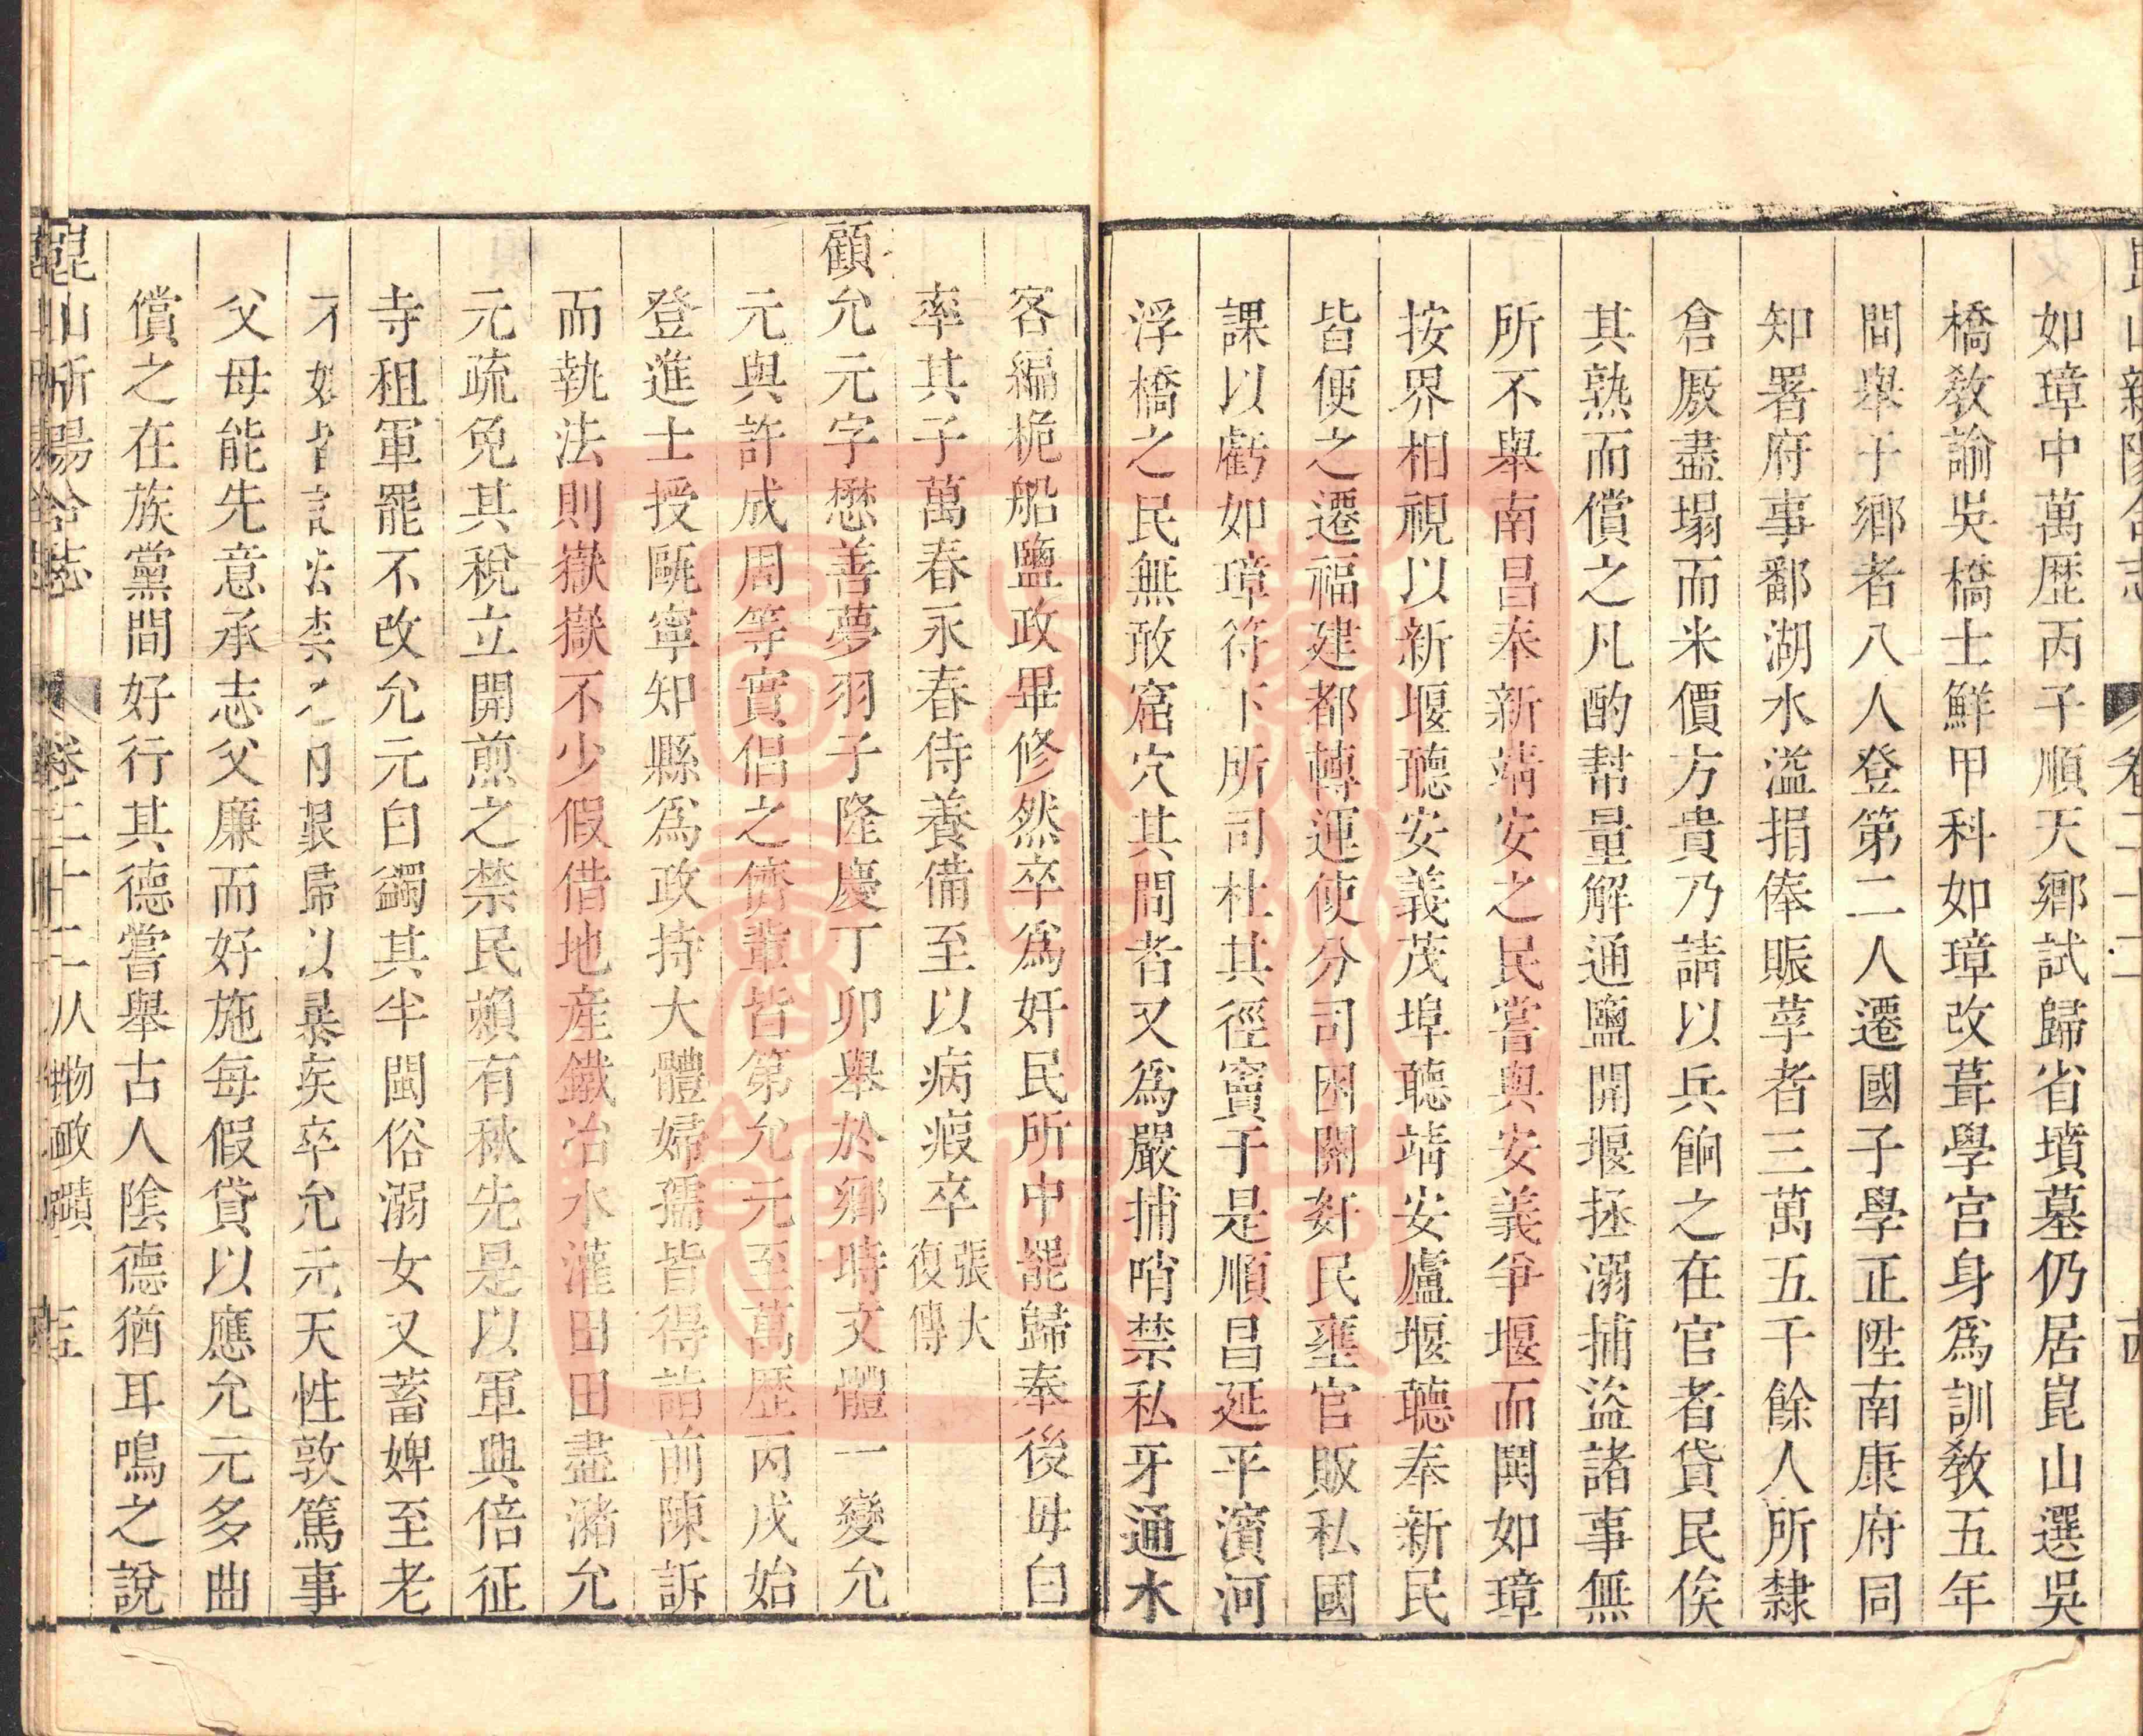 如璋中萬歷丙子順天鄉試歸省墳墓仍居崑山選吳
橋敎諭吳橋士鮮甲科如璋改葺學宮身爲訓敎五年
間舉于鄉者八人登第二人遷國子學正陞南康府同
知署府事鄱湖水溢捐俸賑莩者三萬五千餘人所隸
倉厫盡塌而米價方貴乃請以兵餉之在官者貸民俟
其熟而償之凡酌幇量解通鹽開堰拯溺捕盜諸事無
所不舉南昌奉新靖安之民嘗與安義爭堰而鬨如璋
按界相視以新堰聽安義茂埠聽靖安盧堰聽奉新民
皆便之遷福建都轉運使分司困關奸民壅官販私國
課以虧如璋符下所司杜其徑竇于是順昌延平濱河
浮橋之民無敢窟穴其間者又爲嚴捕哨禁私牙通水
客編桅船鹽政畢修然卒爲奸民所中罷歸奉後母白
率其子萬春永春侍養備至以病瘕卒張大復傳
顧允元字懋善夢羽子隆慶丁卯舉於鄉時文體一變允
元與許成周等實倡之儕輩皆第允元至萬歷丙戌始
登進士授甌寧知縣爲政持大體婦孺皆得詣前陳訴
而執法則嶽嶽不少假借地產鐵冶水灌田田盡瀦允
元疏免其稅立開煎之禁民賴有秋先是以軍興倍征
寺租軍罷不改允元白蠲其半閩俗溺女又蓄婢至老
不歸以暴疾卒允元天性敦篤事
父母能先意承志父廉而好施每假貸以應允元多曲
償之在族黨間好行其德嘗舉古人陰德猶耳鳴之說
崑山新陽合志 卷二十二 人物政績 十五